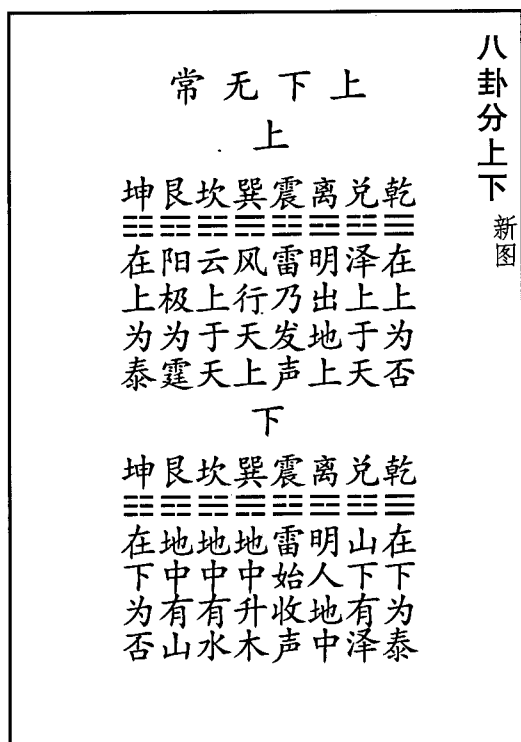 八卦分上下
新图
上下无常
上
乾在上为否
兑泽上于天
离明出地上
震雷乃发声
巽风行天上
坎云上于天
艮阳极为霆
坤在上为泰
下
乾在下为泰
兑山下有泽
离明人地中
震雷始收声
巽地中升木
坎地中有水
艮地中有山
坤在下为否